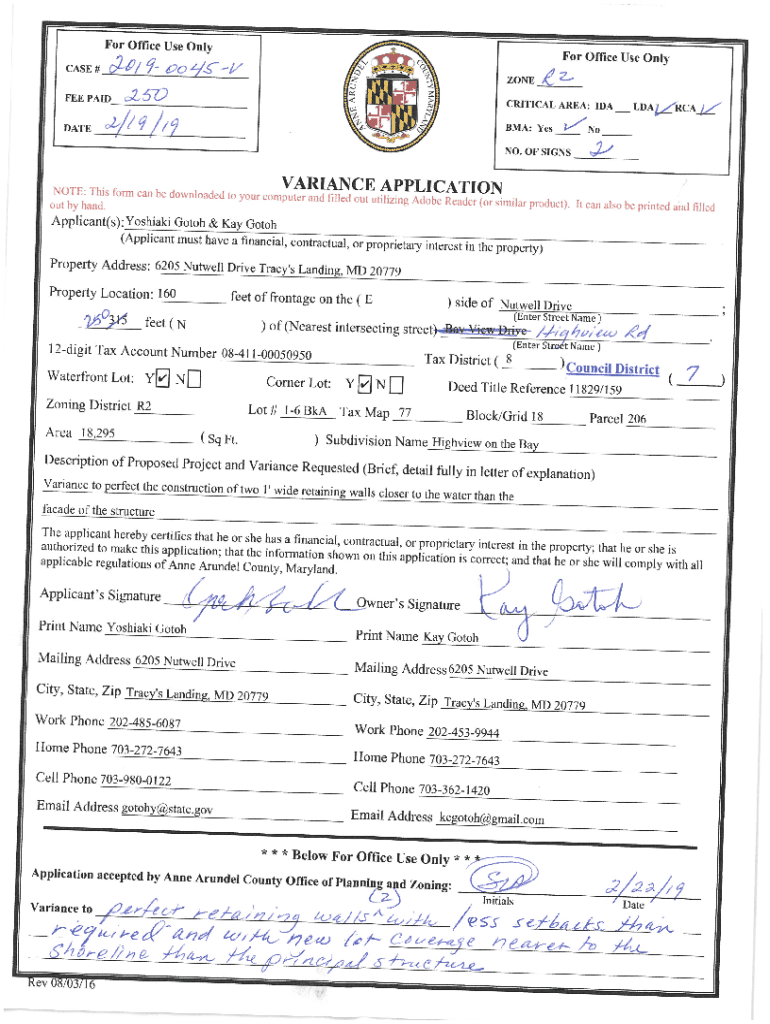 For Office Use Only
CASE # 2019-0045-V
FEE PAID 250
DATE 2/19/19
ANNE ARUNDEL COUNTY MARYLAND
For Office Use Only
ZONE R2
CRITICAL AREA: IDA __ LDA ✓ RCA ✓
BMA: Yes ✓ No
NO. OF SIGNS 2
VARIANCE APPLICATION
NOTE: This form can be downloaded to your computer and filled out utilizing Adobe Reader (or similar product). It can also be printed and filled
out by hand.
Applicant(s): Yoshiaki Gotoh & Kay Gotoh
(Applicant must have a financial, contractual, or proprietary interest in the property)
Property Address: 6205 Nutwell Drive Tracy's Landing, MD 20779
Property Location: 160 feet of frontage on the ( E ) side of Nutwell Drive ;
(Enter Street Name )
250 315 feet ( N ) of (Nearest intersecting street) Bay View Drive Highview Rd .
(Enter Street Name )
12-digit Tax Account Number 08-411-00050950 Tax District ( 8 ) Council District ( 7 )
Waterfront Lot: Y ✓ N Corner Lot: Y ✓ N Deed Title Reference 11829/159
Zoning District R2 Lot # 1-6 BkA Tax Map 77 Block/Grid 18 Parcel 206
Area 18,295 ( Sq Ft. ) Subdivision Name Highview on the Bay
Description of Proposed Project and Variance Requested (Brief, detail fully in letter of explanation)
Variance to perfect the construction of two 1' wide retaining walls closer to the water than the
facade of the structure
The applicant hereby certifies that he or she has a financial, contractual, or proprietary interest in the property; that he or she is
authorized to make this application; that the information shown on this application is correct; and that he or she will comply with all
applicable regulations of Anne Arundel County, Maryland.
Applicant's Signature Owner's Signature Kay Gotoh
Print Name Yoshiaki Gotoh Print Name Kay Gotoh
Mailing Address 6205 Nutwell Drive Mailing Address 6205 Nutwell Drive
City, State, Zip Tracy's Landing, MD 20779 City, State, Zip Tracy's Landing, MD 20779
Work Phone 202-485-6087 Work Phone 202-453-9944
Home Phone 703-272-7643 Home Phone 703-272-7643
Cell Phone 703-980-0122 Cell Phone 703-362-1420
Email Address gotohy@state.gov Email Address kcgotoh@gmail.com
* * * Below For Office Use Only * * *
Application accepted by Anne Arundel County Office of Planning and Zoning: 2/22/19
Initials Date
(2)
Variance to perfect retaining walls ^ with less setbacks than
required and with new lot coverage nearer to the
shoreline than the principal structure
Rev 08/03/16